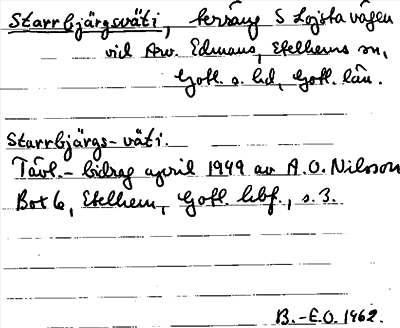 Starrbjärgsväti, terräng S Lojsta vägen
vid Arv. Edmans, Etelhems sn,
Gotl. s. hd, Gotl. län.
Starrbjärgs-väti.
Tävl.- bidrag april 1949 av A.O. Nilsson
Botle, Etelhem, Gotl. hbf., s. 3.
B.-E.O. 1962.